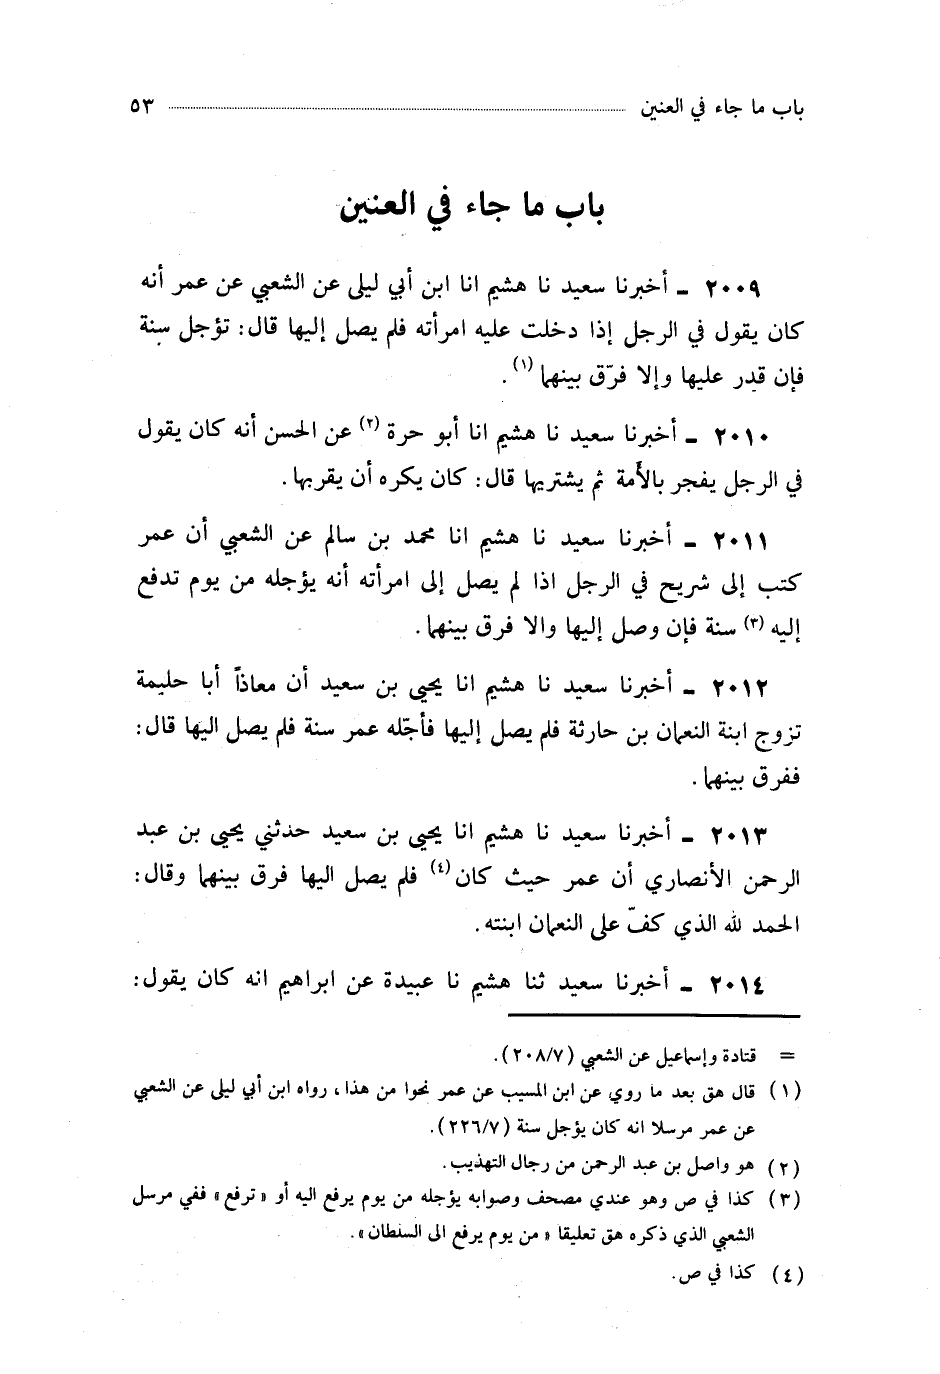 باب ما جاء في العنين ٥٣
باب ما جاء في العنين
٢٠٠٩ ـ أخبرنا سعيد نا هشيم انا ابن أبي ليلى عن الشعبي عن عمر أنه
كان يقول في الرجل إذا دخلت عليه امرأته فلم يصل إليها قال: تؤجل سنة
فإن قدر عليها وإلا فرّق بينهما (١).
٢٠١٠ ـ أخبرنا سعيد نا هشيم انا أبو حرة (٢) عن الحسن أنه كان يقول
في الرجل يفجر بالأمة ثم يشتريها قال: كان يكره أن يقربها.
٢٠١١ ـ أخبرنا سعيد نا هشيم انا محمد بن سالم عن الشعبي أن عمر
كتب إلى شريح في الرجل اذا لم يصل إلى امرأته أنه يؤجله من يوم تدفع
إليه (٣) سنة فإن وصل إليها والا فرق بينهما.
٢٠١٢ ـ أخبرنا سعيد نا هشيم انا يحيى بن سعيد أن معاذاً أبا حليمة
تزوج ابنة النعمان بن حارثة فلم يصل إليها فأجّله عمر سنة فلم يصل اليها قال:
ففرق بينهما.
٢٠١٣ ـ أخبرنا سعيد نا هشيم انا يحيى بن سعيد حدثني يحيى بن عبد
الرحمن الأنصاري أن عمر حيث كان (٤) فلم يصل اليها فرق بينهما وقال:
الحمد لله الذي كفّ على النعمان ابنته.
٢٠١٤ ـ أخبرنا سعيد ثنا هشيم نا عبيدة عن ابراهيم انه كان يقول:
= قتادة وإسماعيل عن الشعبي (٢٠٨/٧).
(١) قال هق بعد ما روي عن ابن المسيب عن عمر نحوا من هذا، رواه ابن أبي ليلى عن الشعبي
عن عمر مرسلا انه كان يؤجل سنة (٢٢٦/٧).
(٢) هو واصل بن عبد الرحمن من رجال التهذيب.
(٣) كذا في ص وهو عندي مصحف وصوابه يؤجله من يوم يرفع اليه أو «ترفع» ففي مرسل
الشعبي الذي ذكره هق تعليقا «من يوم يرفع الى السلطان».
(٤) كذا في ص.